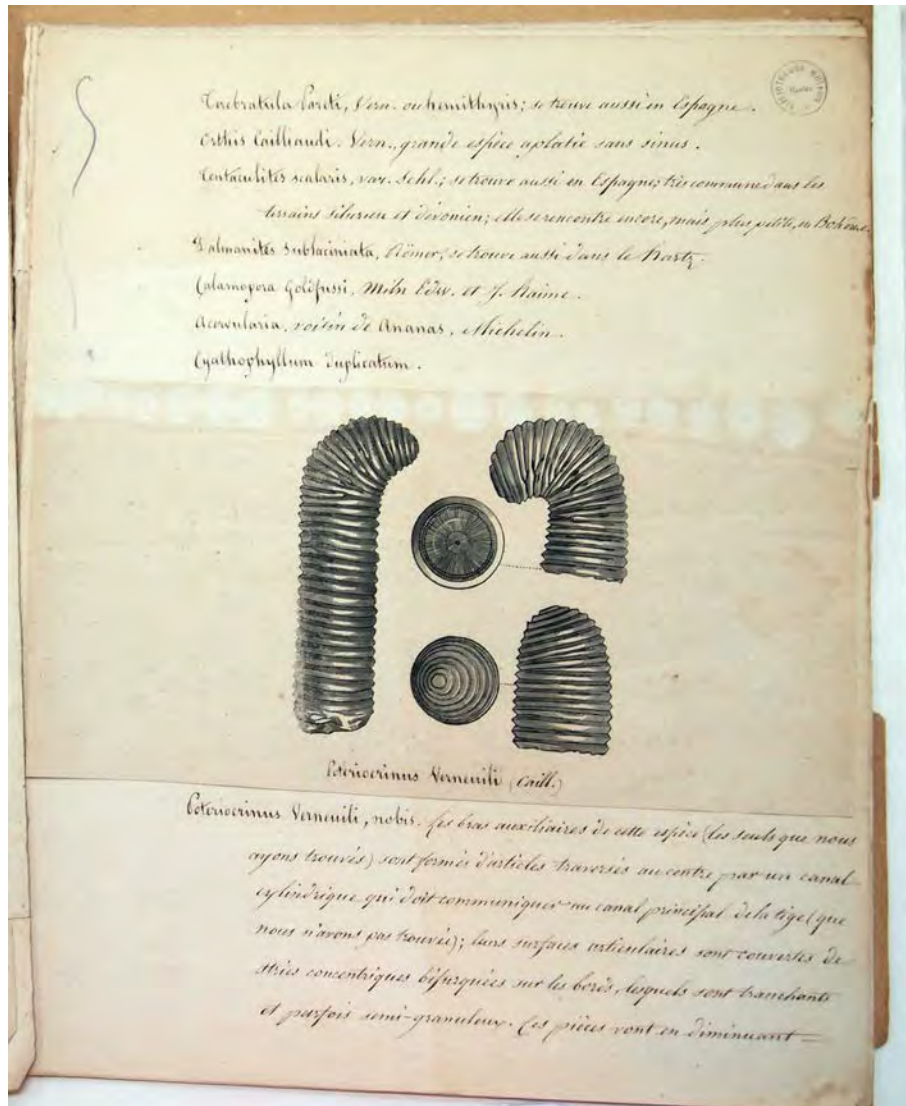 Terebratula Pareti, Vern. ou hemithyris; se trouve aussi en Espagne.
Orthis Cailliaudi. Vern., grande espèce aplatie sans sinus.
Tentaculites scalaris, var. Schl.; se trouve aussi en Espagne; très commune dans les
terrains silurien et dévonien; elle se rencontre encore, mais plus petite, en Bohême.
Dalmanites sublaciniata, Römer; se trouve aussi dans le Hartz.
Calamopora Goldfussi, Miln Edw. et J. Haime.
Acervularia, voisin de Ananas, Michelin.
Cyathophyllum duplicatum.
Poteriocrinus Verneuili (Caill.)
Poteriocrinus Verneuili, nobis. Les bras auxiliaires de cette espèce (les seuls que nous
ayons trouvés) sont formés d'articles traversés au centre par un canal
cylindrique qui doit communiquer au canal principal de la tige (que
nous n'avons pas trouvée); leurs surfaces articulaires sont couvertes de
stries concentriques bifurquées sur les bords, lesquels sont tranchants
et parfois semi-granuleux. Ces pièces vont en diminuant